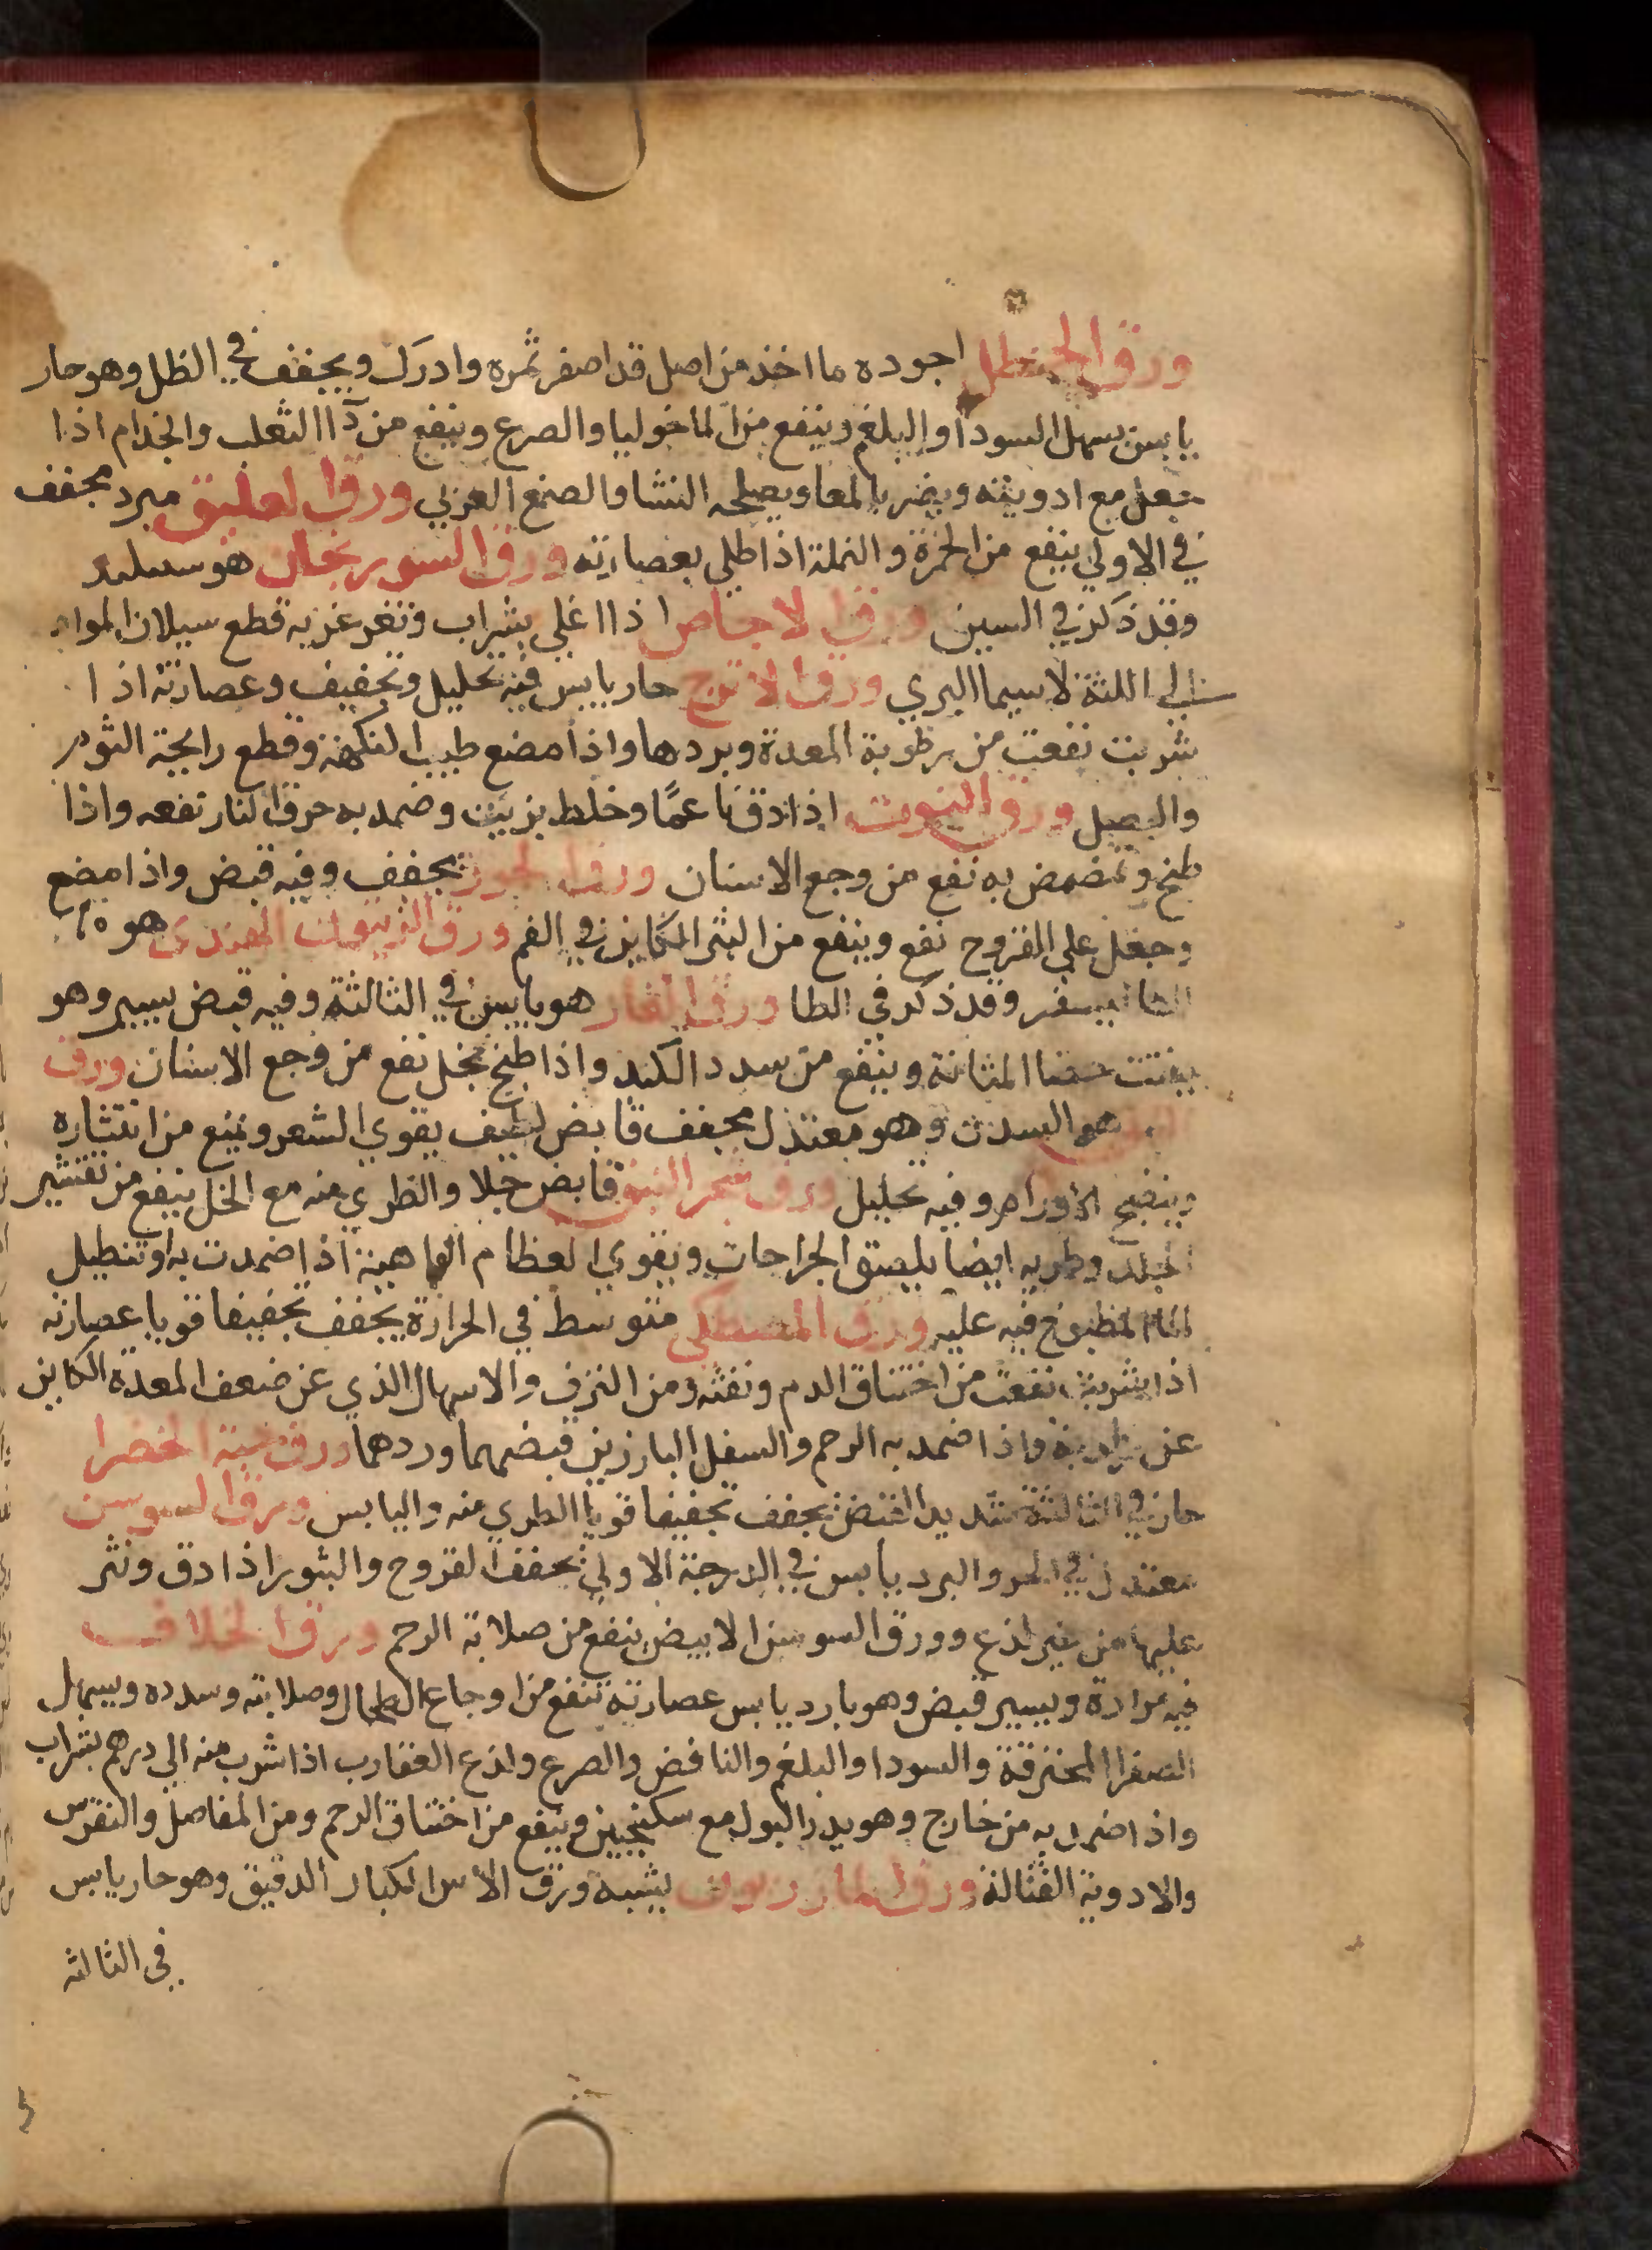 ورق الحنظل اجوده ما اخذ من اصل قد اصفر ثمره وادرك ويجفف في الظل وهو حار
يابس يسهل السودا والبلغم وينفع من المالنخوليا والصرع وينفع من دآ االثعلب والجذام اذا
جعل مع ادويته ويضر بالمعا ويصلحه النشا والصمغ العربي ورق العليق مبرد مجفف
في الاولي ينفع من الحمرة والنملة اذا طلي بعصارته ورق السورنجان هو
وقد ذكر في السين ورق الاجاص اذا اغلي بشراب وتغرغر به قطع سيلان المواد
الي اللثة لا سيما البري ورق الاترج حار يابس فيه تحليل وتجفيف وعصارته اذا
شربت نفعت من رطوبة المعدة وبردها واذا مضغ طيب النكهة وقطع رايحة الثوم
والبصل ورق التوت اذا دق ناعمًا وخلط بزيت وضمد به حرق النار نفعه واذا
طبخ وتمضمض به نفع من وجع الاسنان ورق الجوز يجفف وفيه قبض واذا مضغ
وجعل علي القروح نفع وينفع من البثر الكاين في الفم ورق الزيتون الهندي هو
وقد ذكر في الطا ورق الغار هو يابس في الثالثة وفيه قبض يسير وهو
يفتت حصا المثانة وينفع من سدد الكبد واذا طبخ بخل نفع من وجع الاسنان ورق
هو السدر وهو معتدل مجفف قابض لطيف يقوي الشعر ويمنع من انتثاره
وينضج الاورام وفيه تحليل ورق شجر البق قابض جلا والطري منه مع الخل ينفع من تقشير
الجلد وطريه ايضا يلصق الجراحات ويقوي العظام الواهية اذا ضمدت به او تنطيل
الماء المطبوخ فيه عليه ورق المصطكي متوسط في الحرارة يجفف تجفيفا قويا عصارته
اذا شربت نفعت من اختناق الدم ونفثه ومن النزف والاسهال الذي عن ضعف المعدة الكاين
عن رطوبة واذا ضمد به الرحم والسفل البارزين قبضهما وردهما ورق حبة الخضرا
حار في الثالثة شديد القبض يجفف تجفيفا قويا الطري منه واليابس ورق السوسن
معتدل في الحر والبرد يابس في الدرجة الاولي يجفف القروح والبثور اذا دق ونثر
عليها من غير لذع وورق السوسن الابيض ينفع من صلابة الرحم ورق الخلاف
فيه مرارة ويسير قبض وهو بارد يابس عصارته تنفع من اوجاع الطحال وصلابته وسدده ويسهل
الصفرا المحترقة والسودا والبلغم والنافض والصرع ولذع العقارب اذا شرب منه الي درهم بشراب
واذا ضمد به من خارج وهو يدر البول مع سكنجبين وينفع من اختناق الرحم ومن المفاصل والنقرس
والادوية القتالة ورق المازريون يشبه ورق الآس الكبار الدقيق وهو حار يابس
في الثالثه